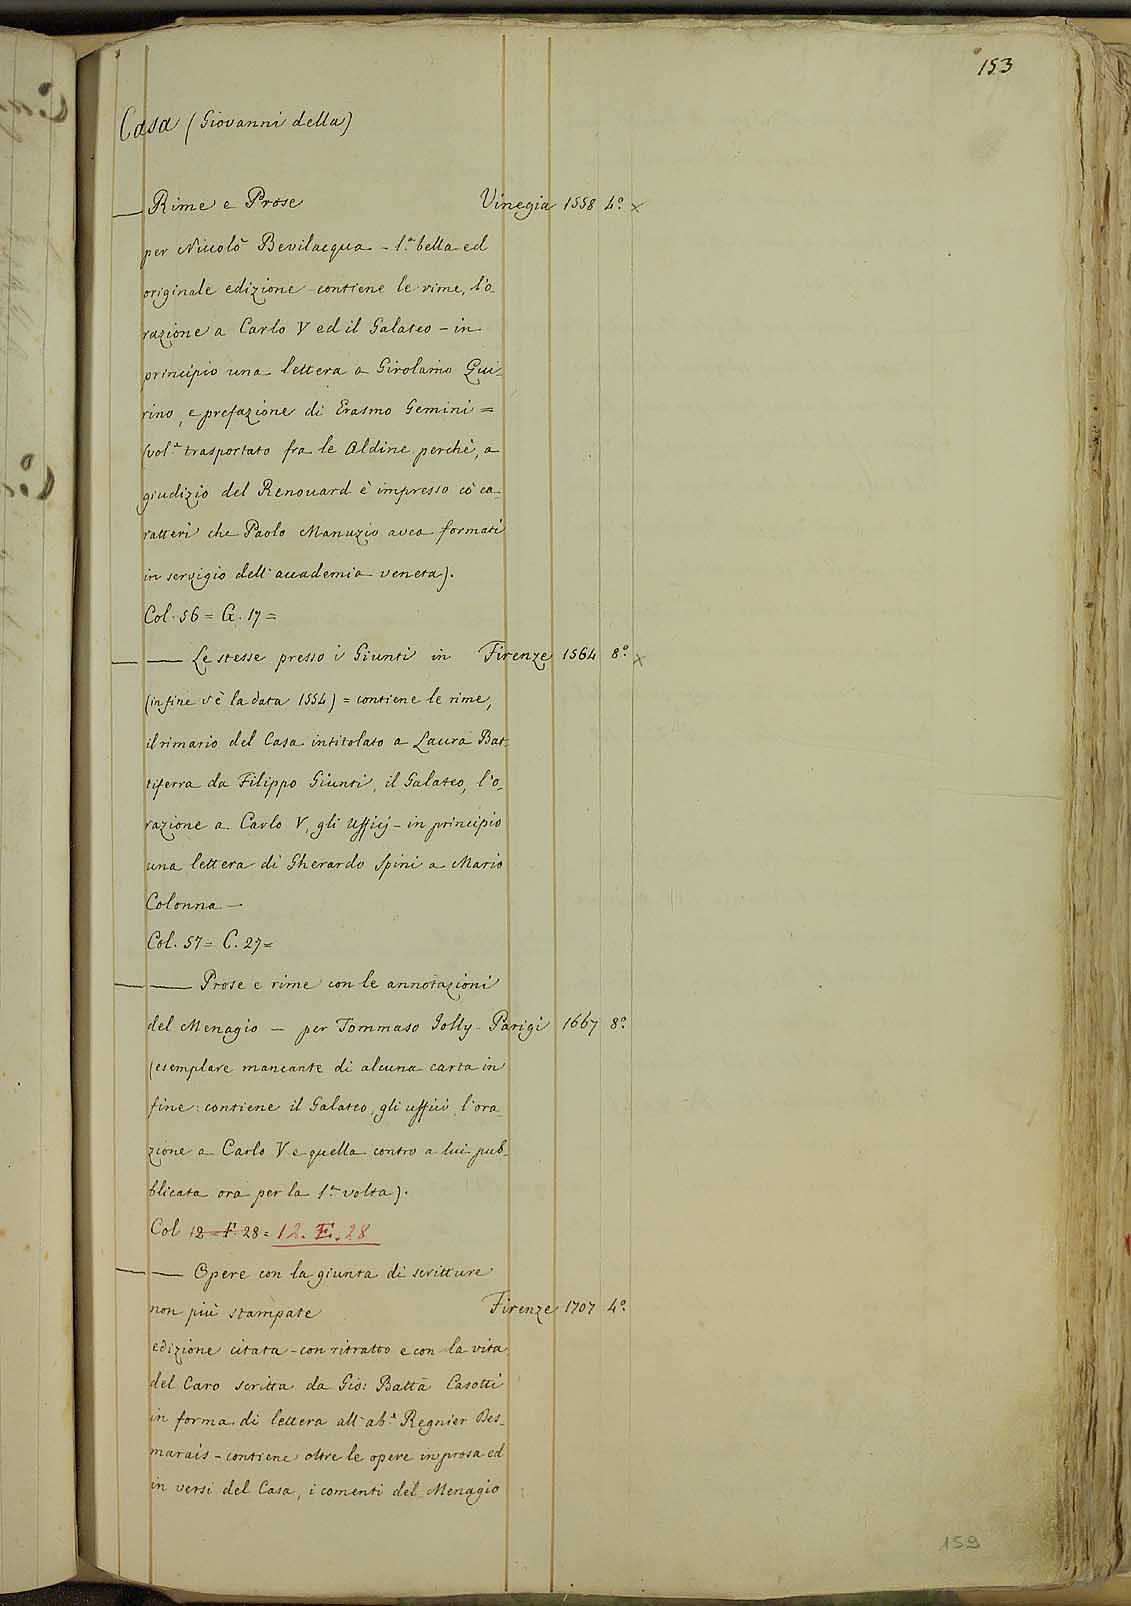 153
Casa (Giovanni della)
— Rime e Prose Vinegia 1558 4.º x
per Niccolò Bevilacqua - 1.ª bella ed
originale edizione - contiene le rime, l'o-
razione a Carlo V ed il Galateo - in
principio una lettera a Girolamo Qui-
rino, e prefazione di Erasmo Gemini =
(vol.e trasportato fra le Aldine perchè, a
giudizio del Renouard è impresso cò ca-
ratteri che Paolo Manuzio avea formati
in servigio dell'accademia veneta).
Col. 56 = G. 17 =
— — Le stesse presso i Giunti in Firenze 1564 8.º x
(in fine v'è la data 1554) = contiene le rime,
il rimario del Casa intitolato a Laura Bat-
tiferra da Filippo Giunti, il Galateo, l'o-
razione a Carlo V, gli Ufficj - in principio
una lettera di Gherardo Spini a Mario
Colonna —
Col. 57 = C. 27 =
— — Prose e rime con le annotazioni
del Menagio — per Tommaso Jolly - Parigi 1667 8.º
(esemplare mancante di alcuna carta in
fine: contiene il Galateo, gli ufficii, l'ora-
zione a Carlo V e quella contro a lui pub-
blicata ora per la 1.ª volta).
Col 12 = F. 28 = 12. E. 28
— — Opere con la giunta di scritture
non più stampate Firenze 1707 4.º
edizione citata - con ritratto e con la vita
del Caro scritta da Gio: Batta Casotti
in forma di lettera all'ab.e Regnier Des-
marais - contiene oltre le opere in prosa ed
in versi del Casa, i comenti del Menagio
159